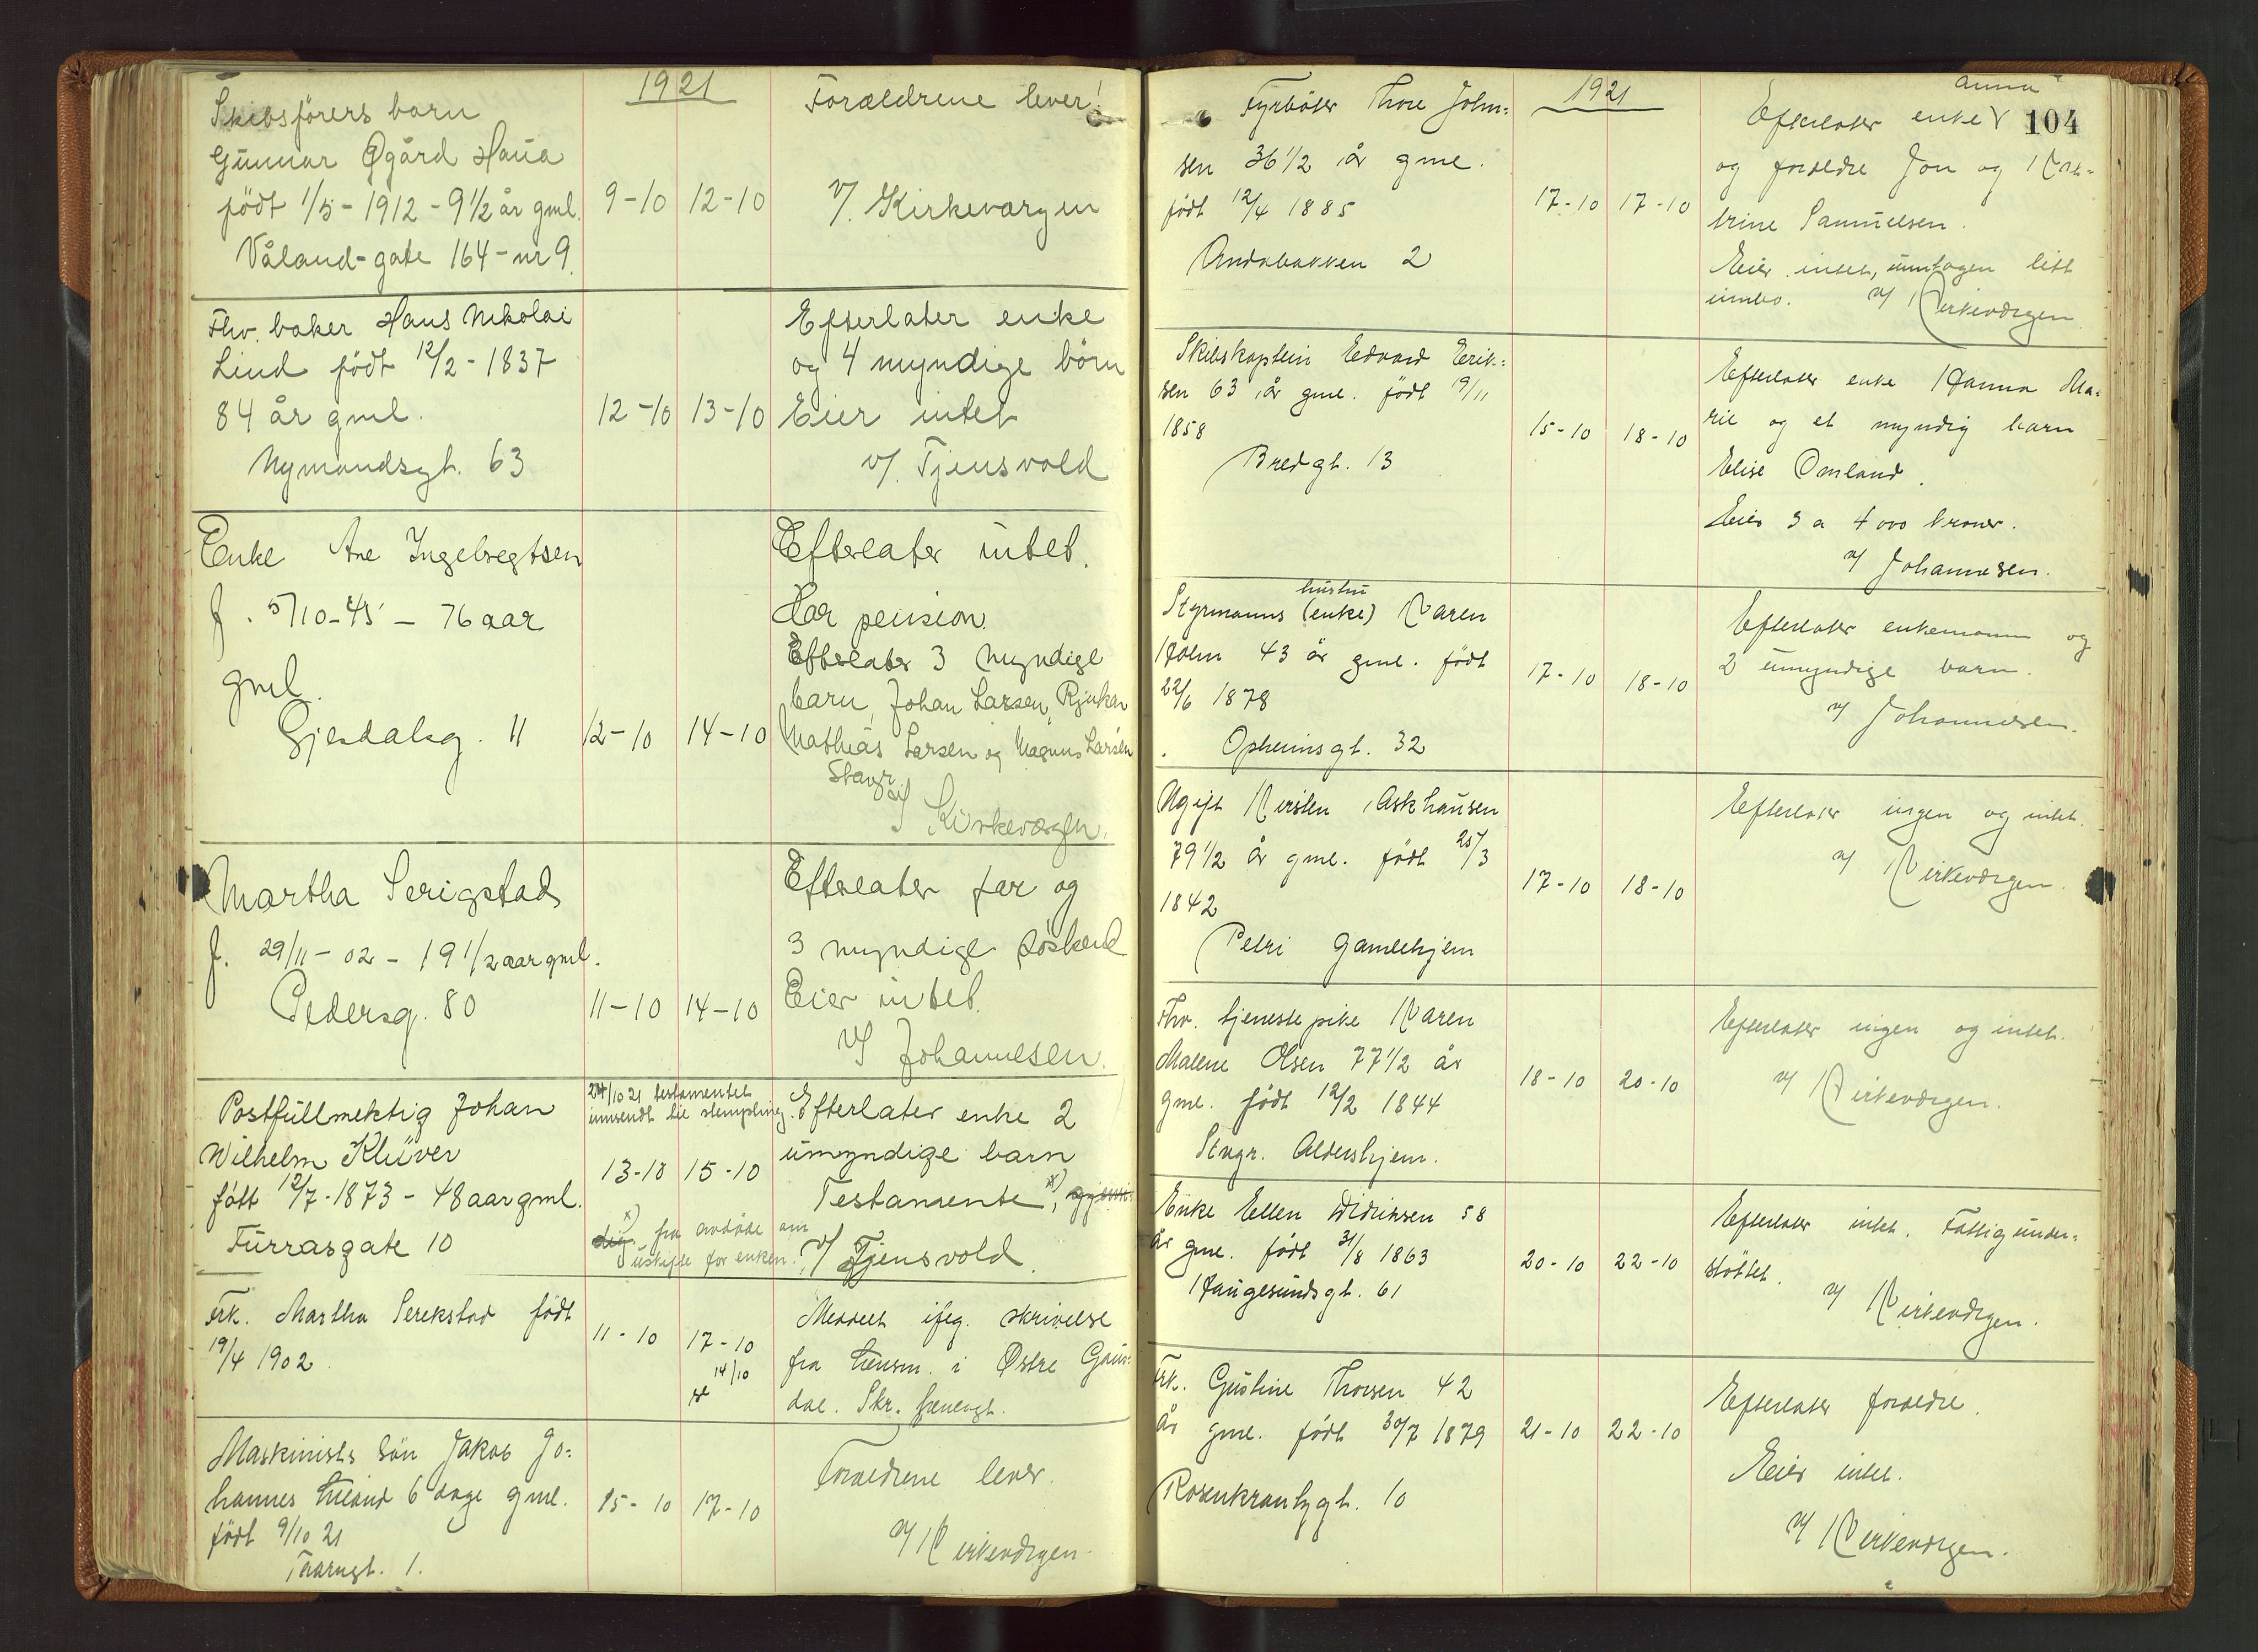 1921
Skibsförers barn
Gunnar Øgård Haua
födt 1/5 - 1912 - 9 1/2 år gml.
Våland-gate 164 - nr 9.
9-10 12-10
Forældrene lever!
v/. Kirkeværgen
Fhv. baker Hans Nikolai
Lind födt 12/2 - 1837
84 år gml.
Nymandsgt. 63
12-10 13-10
Efterlater enke
og 4 myndige börn
Eier intet
v/. Tjensvold
Enke Ane Ingebregtsen
f. 5/10-45 - 76 aar
gml.
Gjesdalsg. 11
12-10 14-10
Efterlater intet.
Har pension
Efterlater 3 myndige
barn, Johan Larsen, Rjukan
Mathias Larsen og Magnus Larsen
Stavgr.
v/ Kirkeværgen.
Martha Serigstad
f. 29/11 - 02 - 19 1/2 aar gml.
Pedersg. 80
11-10 14-10
Efterlater far og
3 myndige söskend
Eier intet.
v/ Johannesen.
Postfullmektig Johan
Wilhelm Klüver
fött 12/7 - 1873 - 48 aar gml.
Furrasgate 10
24/10 21 testamentet
innsendt til stempling.
13-10 15-10
x) fra avdöde om
uskifte for enken.
Efterlater enke 2
umyndige barn
Testamente x),
v/ Tjensvold.
Frk. Martha Serekstad födt
19/4 1902.
11-10 17-10
14/10
Meddelt ifeg. skrivelse
fra lensm. i Østre Gaus-
dal. Skr. fremlagt.
Maskinists sön Jakob Jo-
hannes 6 dage gml.
födt 9/10 21
Taarngt. 1.
15-10 17-10
Forældrene lever.
v/ Kirkeværgen
104
1921
Fyrböter Thore John-
sen 36 1/2 år gml.
födt 12/4 1885
Andabakken 2
17-10 17-10
Anna
Efterlater enke V
og forældre Jon og Kat-
trine Samuelsen.
Eier intet, unntagen litt
innbo. v/ Kirkeværgen
Skibskaptein Edvard Erik-
sen 63 år gml. födt 19/11
1858
Bredgt. 13
15-10 18-10
Efterlater enke Hanna Ma-
rie og et myndig barn
Elise Omland.
Eier 3 a 4000 kroner.
v/ Johannesen.
hustru
Styrmanns (enke) Karen
Holm 43 år gml. födt
22/6 1878
Opheimsgt. 32
17-10 18-10
Efterlater enkemann og
2 umyndige barn.
v/ Johannesen.
Ugift Kirsten Askhausen
79 1/2 år gml. födt 25/3
1842
Petri Gamlehjem
17-10 18-10
Efterlater ingen og intet.
v/ Kirkeværgen.
Fhv. tjenestepike Karen
Malene Olsen 77 1/2 år
gml. födt 12/2 1844
Stvgr. Aldershjem.
18-10 20-10
Efterlater ingen og intet.
v/ Kirkeværgen.
Enke Ellen Didriksen 58
år gml. födt 31/8 1863
Haugesundsgt. 61
20-10 22-10
Efterlater intet. Fattigunder-
støttet.
v/ Kirkeværgen.
Frk. Gustine Thorsen 42
år gml. födt 30/7 1879
Rosenkrantzgt. 10
21-10 22-10
Efterlater foreldre.
Eier intet.
v/ Kirkeværgen.